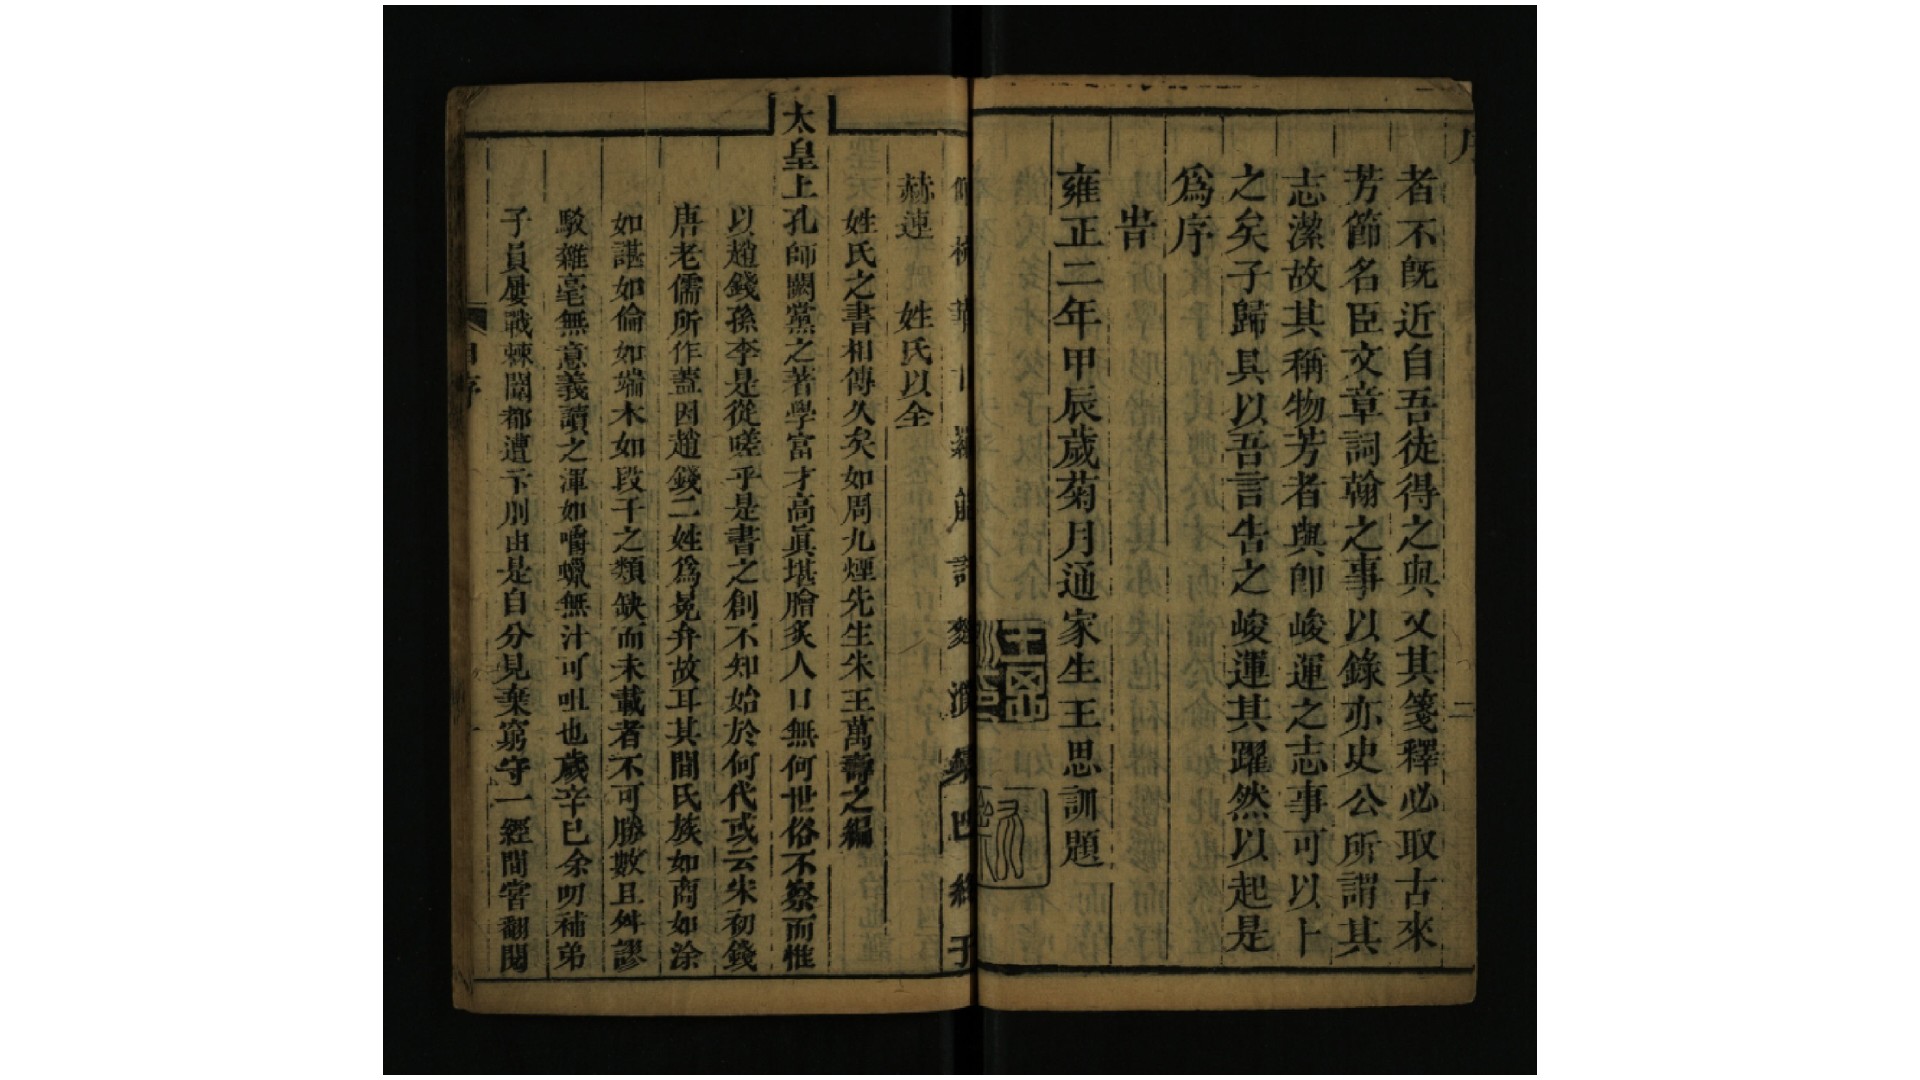 者不旣近自吾徒得之與又其箋釋必取古來
芳節名臣文章詞翰之事以錄亦史公所謂其
志潔故其稱物芳者與卽峻運之志事可以卜
之矣子歸具以吾言告之峻運其躍然以起是
爲序
旹
雍正二年甲辰歲菊月通家生王思訓題
赫連 姓氏以全
姓氏之書相傳久矣如周九煙先生朱王萬壽之編
太皇上孔師闕黨之著學富才高眞堪膾炙人口無何世俗不察而惟
以趙錢孫李是從嗟乎是書之創不知始於何代或云宋初錢
唐老儒所作蓋因趙錢二姓爲冕弁故耳其間氏族如商如涂
如諶如倫如端木如段干之類缺而未載者不可勝數且舛謬
駁雜毫無意義讀之渾如嚼蠟無汁可咀也歲辛巳余叨補弟
子員屢戰棘闈都遭下刖由是自分見棄窮守一經間嘗翻閱